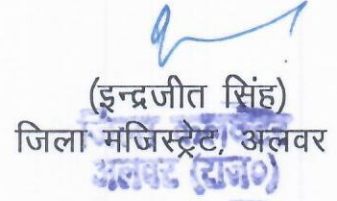 (इन्द्रजीत सिंह)
जिला मजिस्ट्रेट, अलवर
अलवर (राज०)